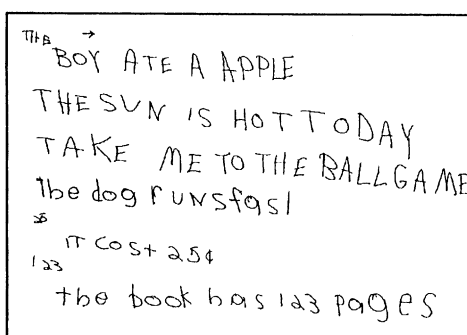 THE →
BOY ATE A APPLE
THE SUN IS HOT TODAY
TAKE ME TO THE BALL GAME
The dog RUNS fast
25
IT COSt 25¢
123
the book has 123 pages